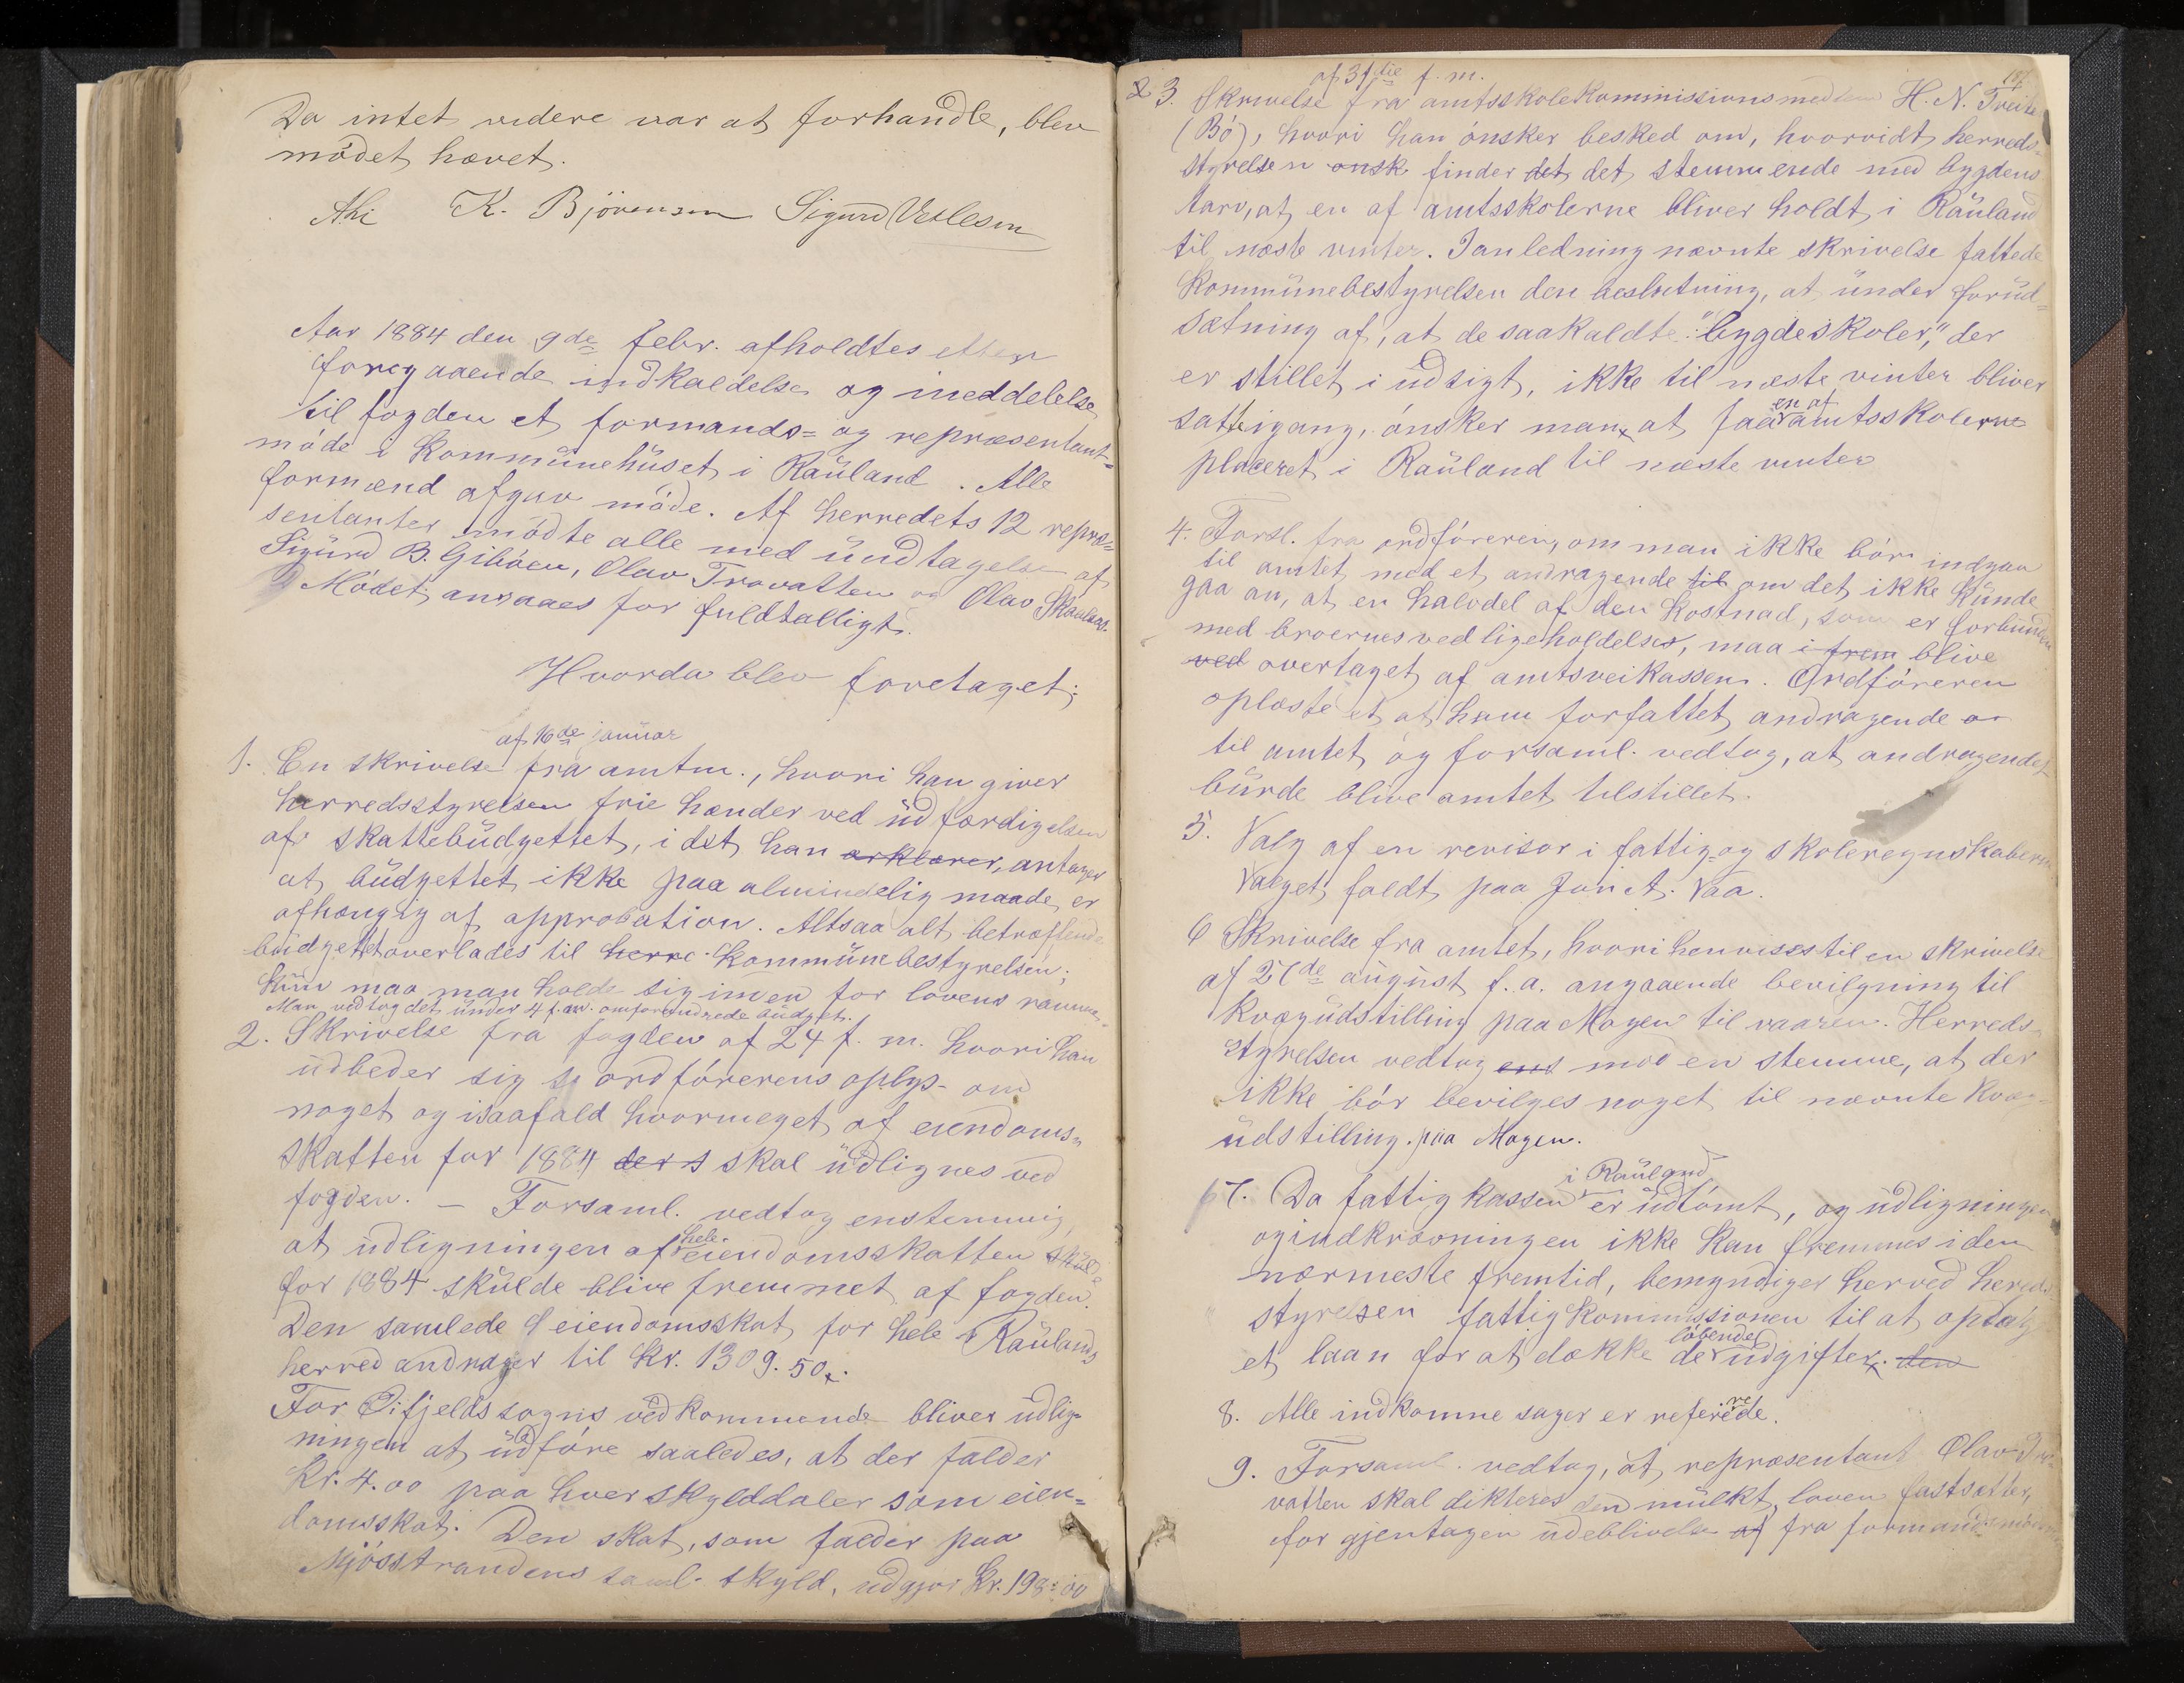 Da intet videre var at forhandle, blev
mödet hævet.
K. Bjövensen Sigurd Veslesen
Aar 1884 den 9de febr. afholdtes efter
foregaaende indkaldelse og meddelelse
til fogden et formands= og repræsentant=
möde i Kommünehüset i Raüland. Alle
formænd afgav möde. Af herredets 12 repræ=
sentanter mödte alle med ündtagelse af
Sigürd B. Giböen, Olav Trovatten og Olav
Mödet ansaaes for fuldtalligt.
Hvorda blev foretaget:
af 16de janüar
1. En skrivelse fra amtm., hvori han giver
herredsstyrelsen frie hænder ved üdfærdigelsen
af skattebüdgettet, i det han erklærer, antager
at büdgettet ikke paa almindelig maade er
afhængig af approbation. Altsaa alt betræffende
büdgettet overlades til herre Kommünebestyrelsen;
kün maa man holde sig innen for lovens ramme.
Man vedtog det ünder 4 f. m. omforandrede büdget.
2. Skrivelse fra fogden af 24 f. m. hvori han
üdbeder sig ordförerens oplys- om
noget og isaafald hvormeget af eiendoms=
skatten for 1884 der s skal üdlignes ved
fogden. – Forsaml. vedtog enstemmig,
hele
at üdligningen af eiendomsskatten skülde
for 1884 skülde blive fremmet af fogden.
Den samlede eiendomsskat for hele Raülands
herred andrager til Kr. 1309.50.
For Öifjelds sogns vedkommende bliver üdlig-
ningen at üdföre saaledes, at der falder
Kr. 4.00 paa hver skylddaler som eien=
domsskat. Den skat, som falder paa
Mjösstrandens saml. skyld, üdgjor Kr. 198.00
af 31die f. m.
3. Skrivelse fra amtsskolekommissionsmedlem H. N. Treite
(Bö), hvori han önsker besked om, hvorvidt herreds=
styrelsen önsk finder det det stemmende med bygdens
tarv, at en af amtsskolerne bliver holdt i Raüland
til næste vinter. I anledning nævnte skrivelse fattede
Kommünebestyrelsen den beslutning, at ünder forüd=
sætning af, at de saakaldte "bygdeskoler," der
er stillet i üdsigt, ikke til næste vinter bliver
en af
satt igang, önsker man, at faa amtsskolerne
placeret i Raüland til næste vinter
4. Forsl. fra ordföreren, om man ikke bör indgaa
til amtet med et andragende til om det ikke künde
gaa an, at en halvdel af den kostnad, som er forbünden
med broernes vedligeholdelse, maa i frem blive
ved overtaget af amtsveikassen. Ordföreren
oplæste et af ham forfattet andragende
til amtet og forsaml. vedtog, at andragendet
bürde blive amtet tilstillet.
5. Valg af en revisor i fattig- og skoleregnskaberne
Valget faldt paa Jon A. Vaa.
6 Skrivelse fra amtet, hvori henvises til en skrivelse
af 27de aügust f. a. angaaende bevilgning til
Kvægüdstilling paa Mogen til vaaren. Herreds-
styrelsen vedtog ens mod en stemme, at der
ikke bör bevilges noget til nævnte Kvæg-
üdstilling. paa Mogen.
i Raüland
7. Da fattigkassen er üdtömt, og üdligningen
og indkrævningen ikke kan fremmes i den
nærmeste fremtid, bemyndiger herved herreds
styrelsen fattigkommissionen til at optage
löbende
et laan for at dække de üdgifter. den
8. Alle indkomne sager er refererede.
9. Forsaml. vedtog, at repræsentant Olav Tro-
vatten skal dikteres den mülkt, loven fastsætter,
for gjentagen üdeblivelse af fra formandsmöderne